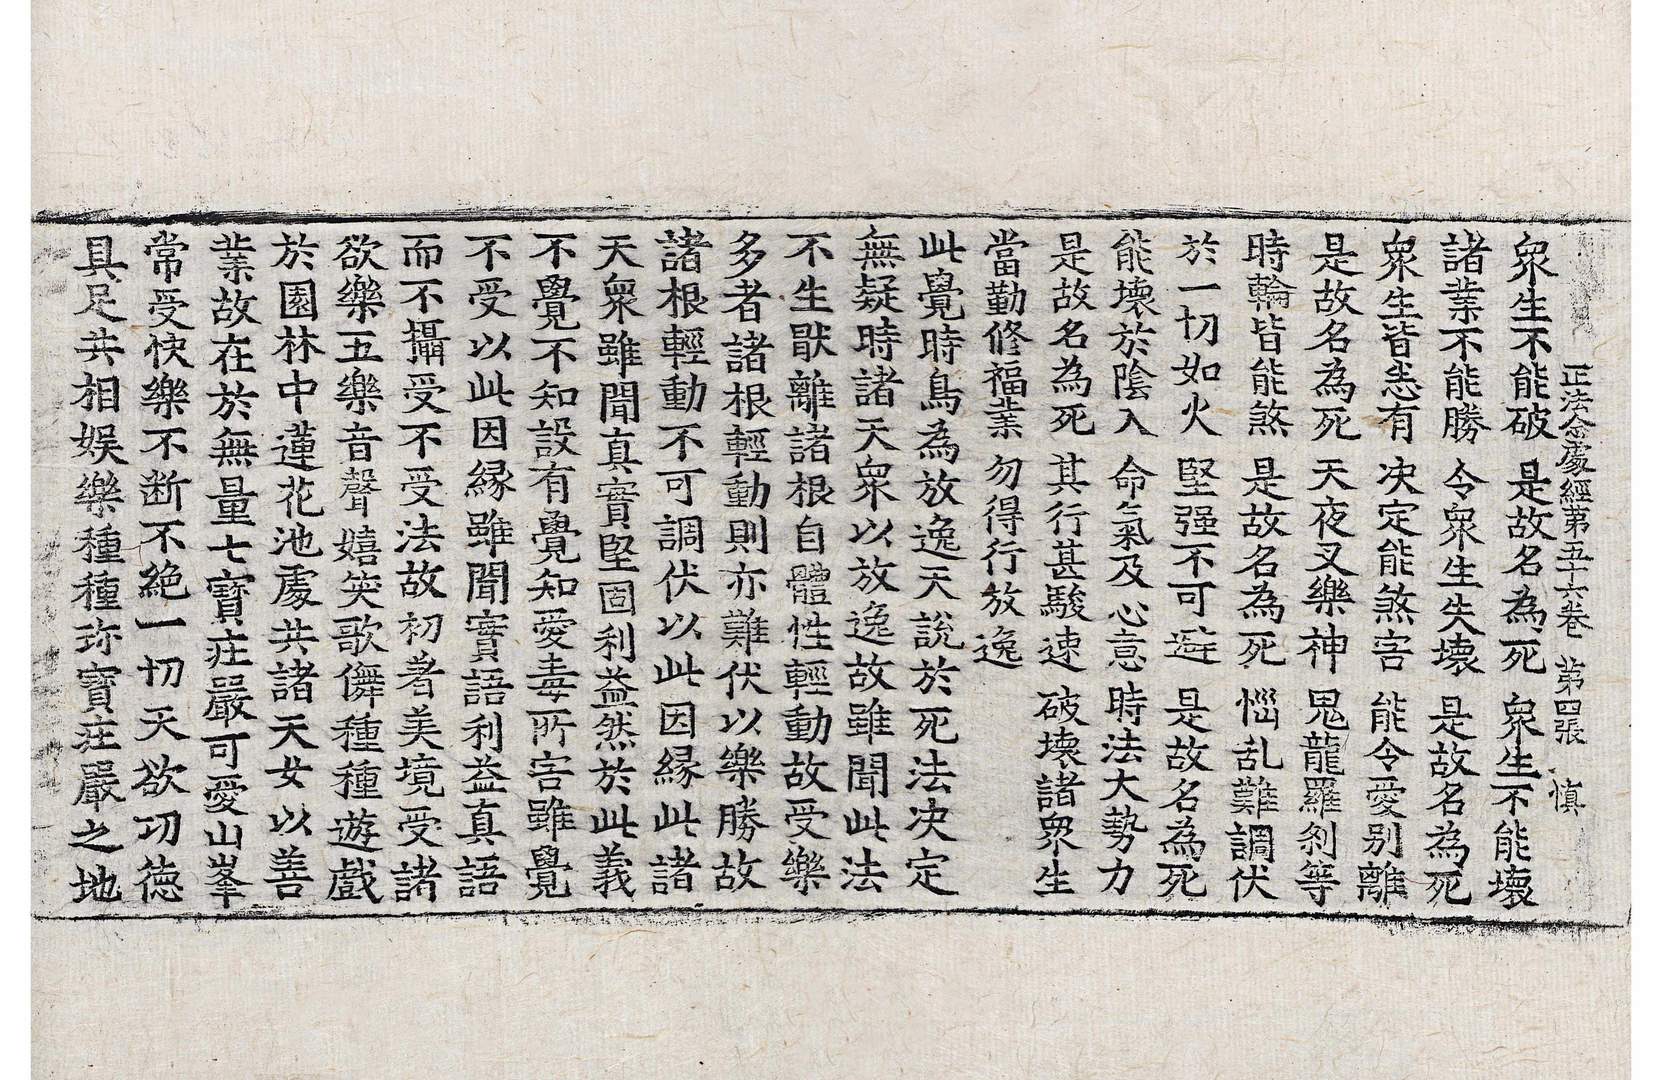 正法念處經第五十六卷 第四張 慎
衆生不能破 是故名為死 衆生不能壞
諸業不能勝 令衆生失壞 是故名為死
衆生皆悉有 决定能煞害 能令愛别離
是故名為死 天夜叉樂神 鬼龍羅刹等
時輪皆能煞 是故名為死 惱乱難調伏
於一切如火 堅强不可避 是故名為死
能壞於陰入 命氣及心意 時法大勢力
是故名為死 其行甚駿速 破壞諸衆生
當勤修福業 勿得行放逸
此覺時鳥為放逸天說於死法决定
無疑時諸天衆以放逸故雖聞此法
不生厭離諸根自體性輕動故受樂
多者諸根輕動則亦難伏以樂勝故
諸根輕動不可調伏以此因緣此諸
天衆雖聞真實堅固利益然於此義
不覺不知設有覺知愛毒所害雖覺
不受以此因緣雖聞實語利益真語
而不攝受不受法故初著美境受諸
欲樂五樂音聲嬉笑歌儛種種遊戲
於園林中蓮花池處共諸天女以善
業故在於無量七寶莊嚴可愛山峯
常受快樂不断不絕一切天欲功德
具足共相娛樂種種珎寶莊嚴之地